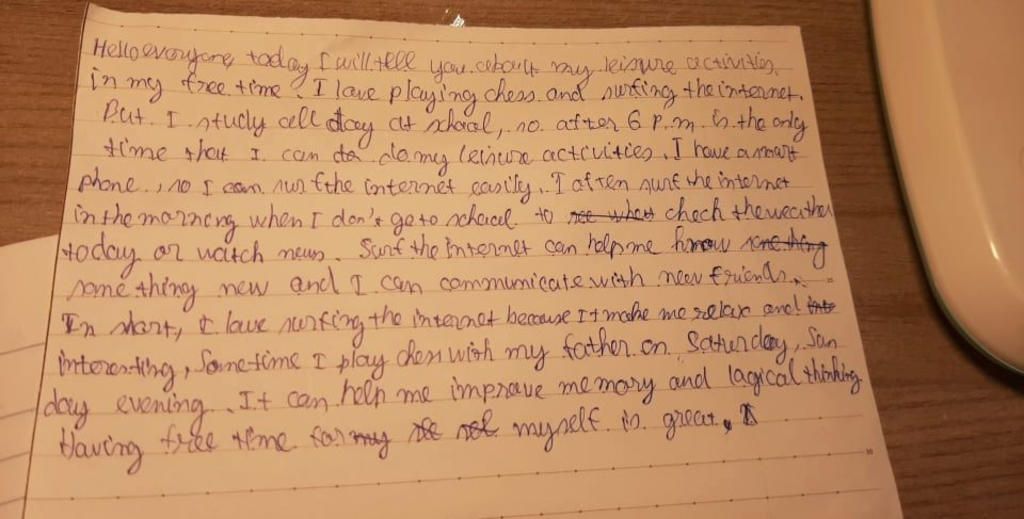 Hello everyone, today I will tell you about my leisure activities.
in my free time. I love playing chess and surfing the internet.
But I study all day at school, so after 6 p.m. is the only
time that I can do do my leisure activities. I have a smart
phone, so I can surf the internet easily. I often surf the internet
in the morning when I don't go to school to see what check the weather
today or watch news. Surf the internet can help me know some thing
some thing new and I can communicate with new friends.
In short, I love surfing the internet because It make me relax and inte
interesting, Sometime I play chess with my father on Saturday, Sun
day evening. It can help me improve memory and logical thinking
Having free time for my myself is great. I